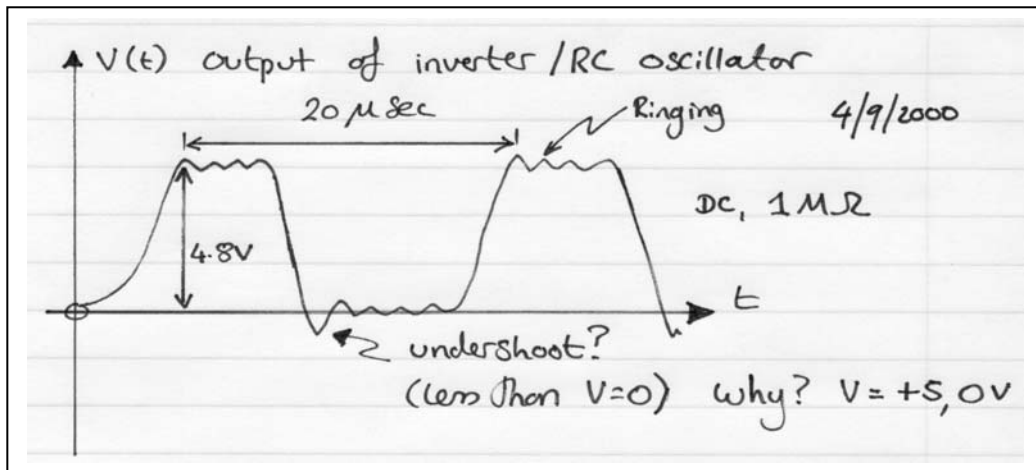 V(t) output of inverter/RC oscillator
20 μsec
Ringing
4/9/2000
DC, 1MΩ
4.8V
t
undershoot?
(less than V=0) why? V=+5,0V